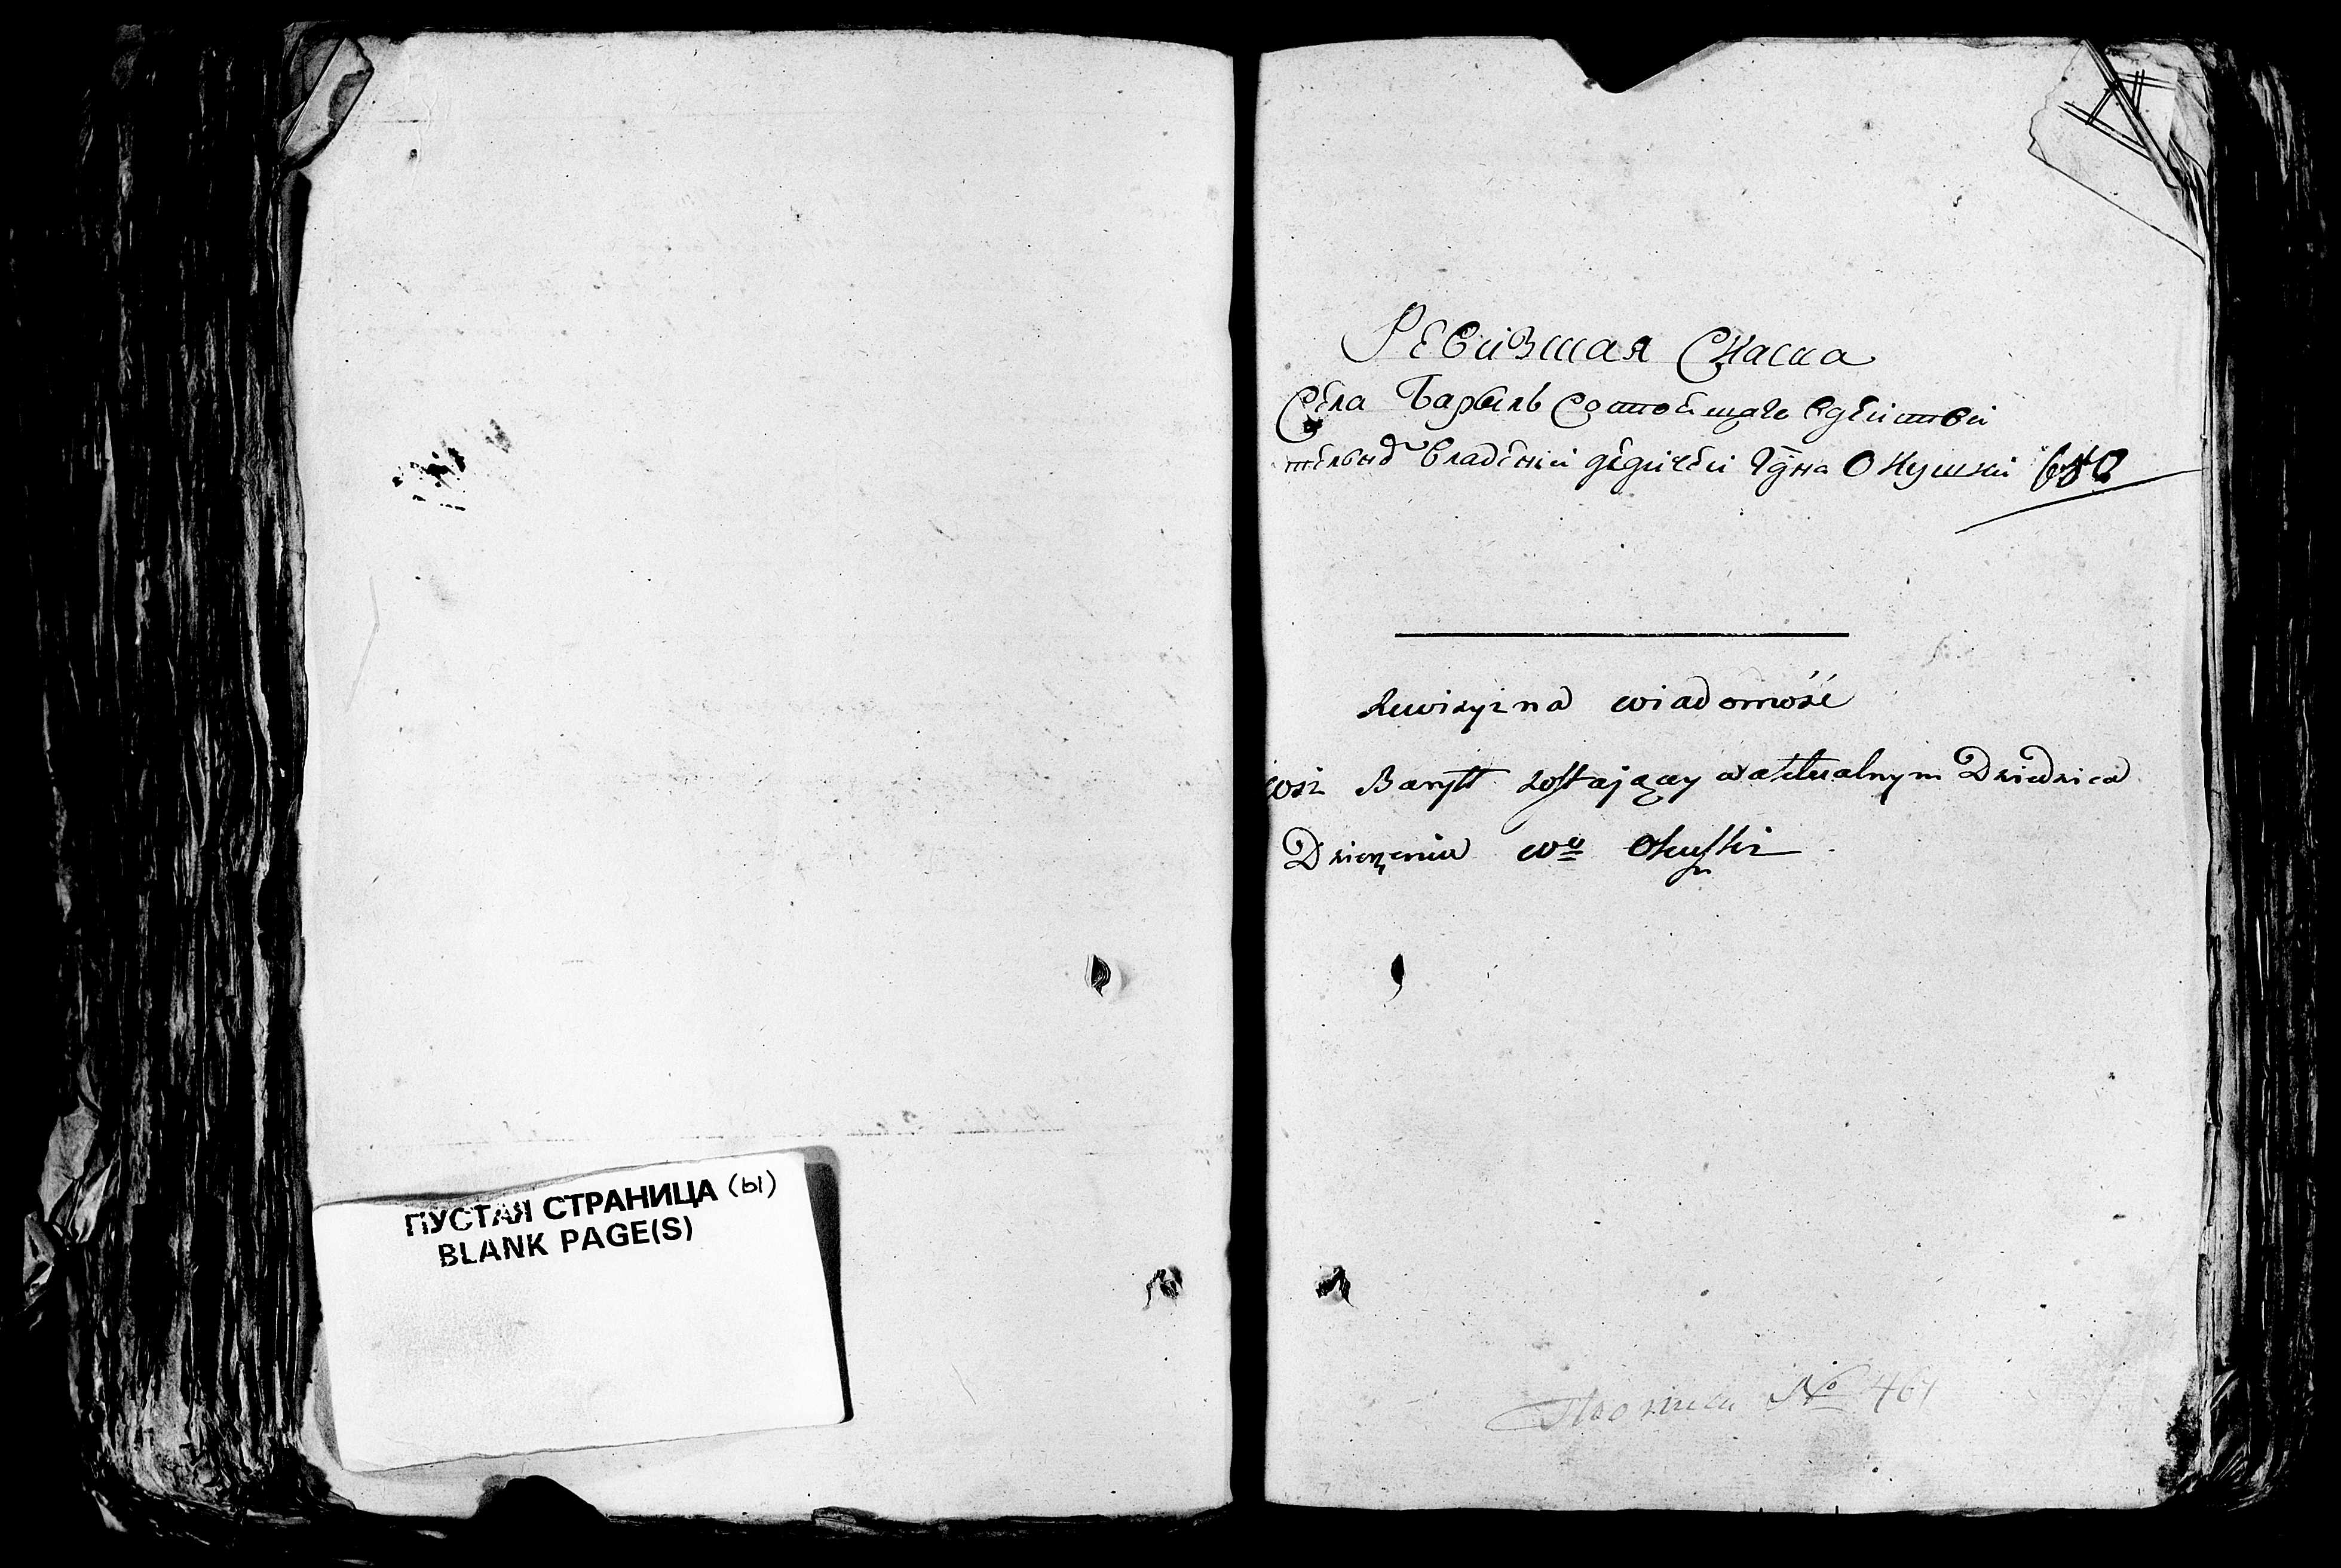 ПУСТАЯ СТРАНИЦА (ы)
BLANK PAGE(S)
Ревизшая Скаска
Села Барыль Состоещаго вдействи
тельно владении дедичеи Гдна Окушки
Rewizyzna wiadomość
wsi Barylt zostający w aktualnym Dziedzica
Dzierzeniu wo Okuszki
№ 461